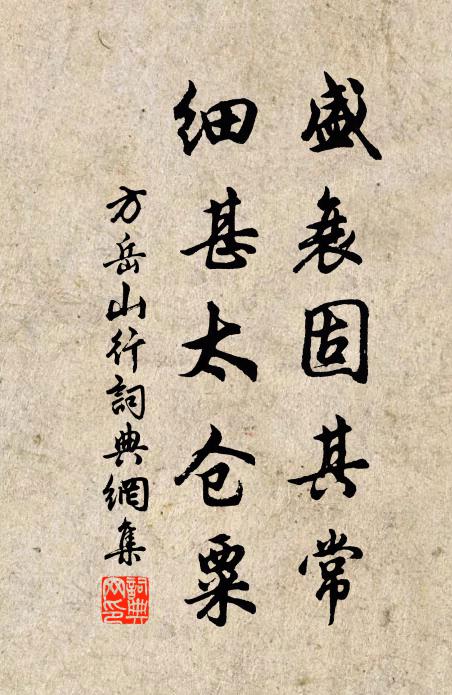 盛衰固其常
细甚太仓粟
方岳山行詞典網集
詞典